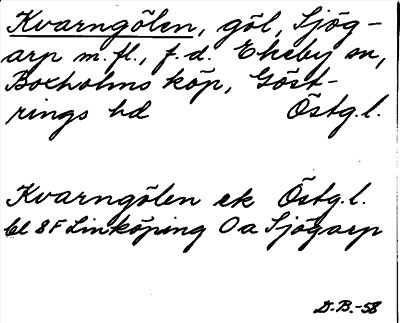 Kvarngölen, göl, Sjög-
arp m.fl., f.d. Ekeby sn,
Boxholms köp, Göst-
rings hd Östg.l.
Kvarngölen ek Östg.l.
bl 8F Linköping 0a Sjögarp
D.B.-58